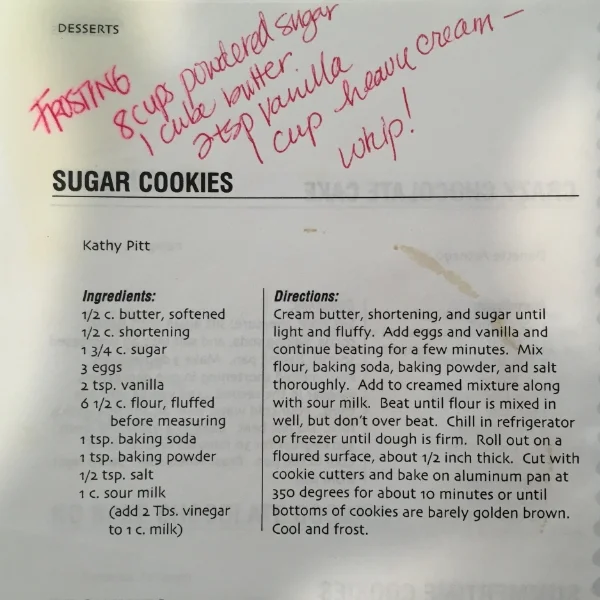 DESSERTS
FROSTING
8 cups powdered sugar
1 cube butter.
2 tsp vanilla
1 cup heavy cream –
whip!
SUGAR COOKIES
Kathy Pitt
Ingredients:
1/2 c. butter, softened
1/2 c. shortening
1 3/4 c. sugar
3 eggs
2 tsp. vanilla
6 1/2 c. flour, fluffed
before measuring
1 tsp. baking soda
1 tsp. baking powder
1/2 tsp. salt
1 c. sour milk
(add 2 Tbs. vinegar
to 1 c. milk)
Directions:
Cream butter, shortening, and sugar until
light and fluffy. Add eggs and vanilla and
continue beating for a few minutes. Mix
flour, baking soda, baking powder, and salt
thoroughly. Add to creamed mixture along
with sour milk. Beat until flour is mixed in
well, but don't over beat. Chill in refrigerator
or freezer until dough is firm. Roll out on a
floured surface, about 1/2 inch thick. Cut with
cookie cutters and bake on aluminum pan at
350 degrees for about 10 minutes or until
bottoms of cookies are barely golden brown.
Cool and frost.